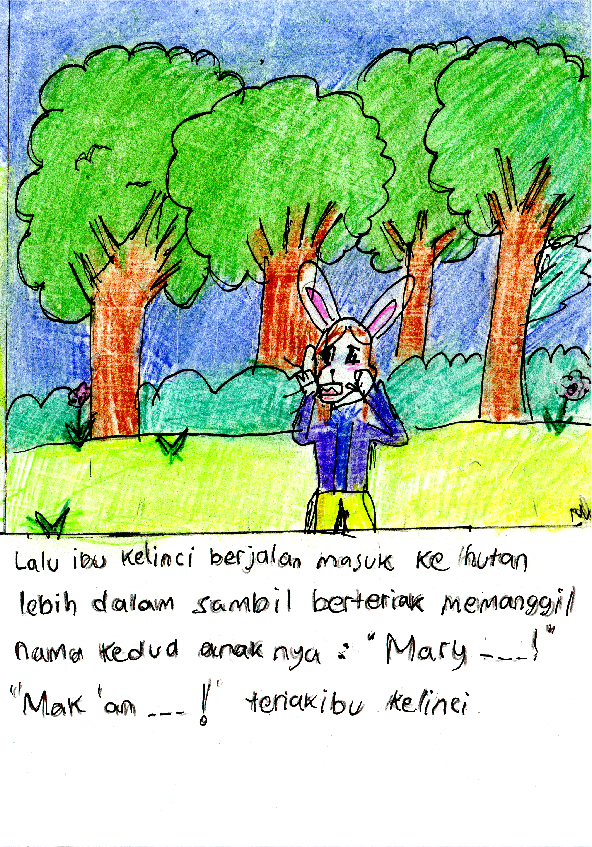 Lalu ibu kelinci berjalan masuk ke hutan
lebih dalam sambil berteriak memanggil
nama kedua anak nya : "Mary ---!"
"Mak 'an ---!" teriak ibu kelinci